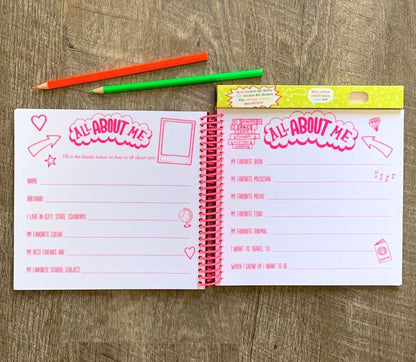 ALL ABOUT ME
Fill in the blanks below so they're all about you!
NAME
BIRTHDAY
I LIVE IN (CITY, STATE, COUNTRY)
MY FAVORITE COLOR
MY BEST FRIENDS ARE
MY FAVORITE SCHOOL SUBJECT
SPACE
ALL ABOUT ME
MY FAVORITE BOOK
MY FAVORITE MUSICIAN
MY FAVORITE MOVIE
MY FAVORITE FOOD
MY FAVORITE ANIMAL
I WANT TO TRAVEL TO
WHEN I GROW UP I WANT TO BE